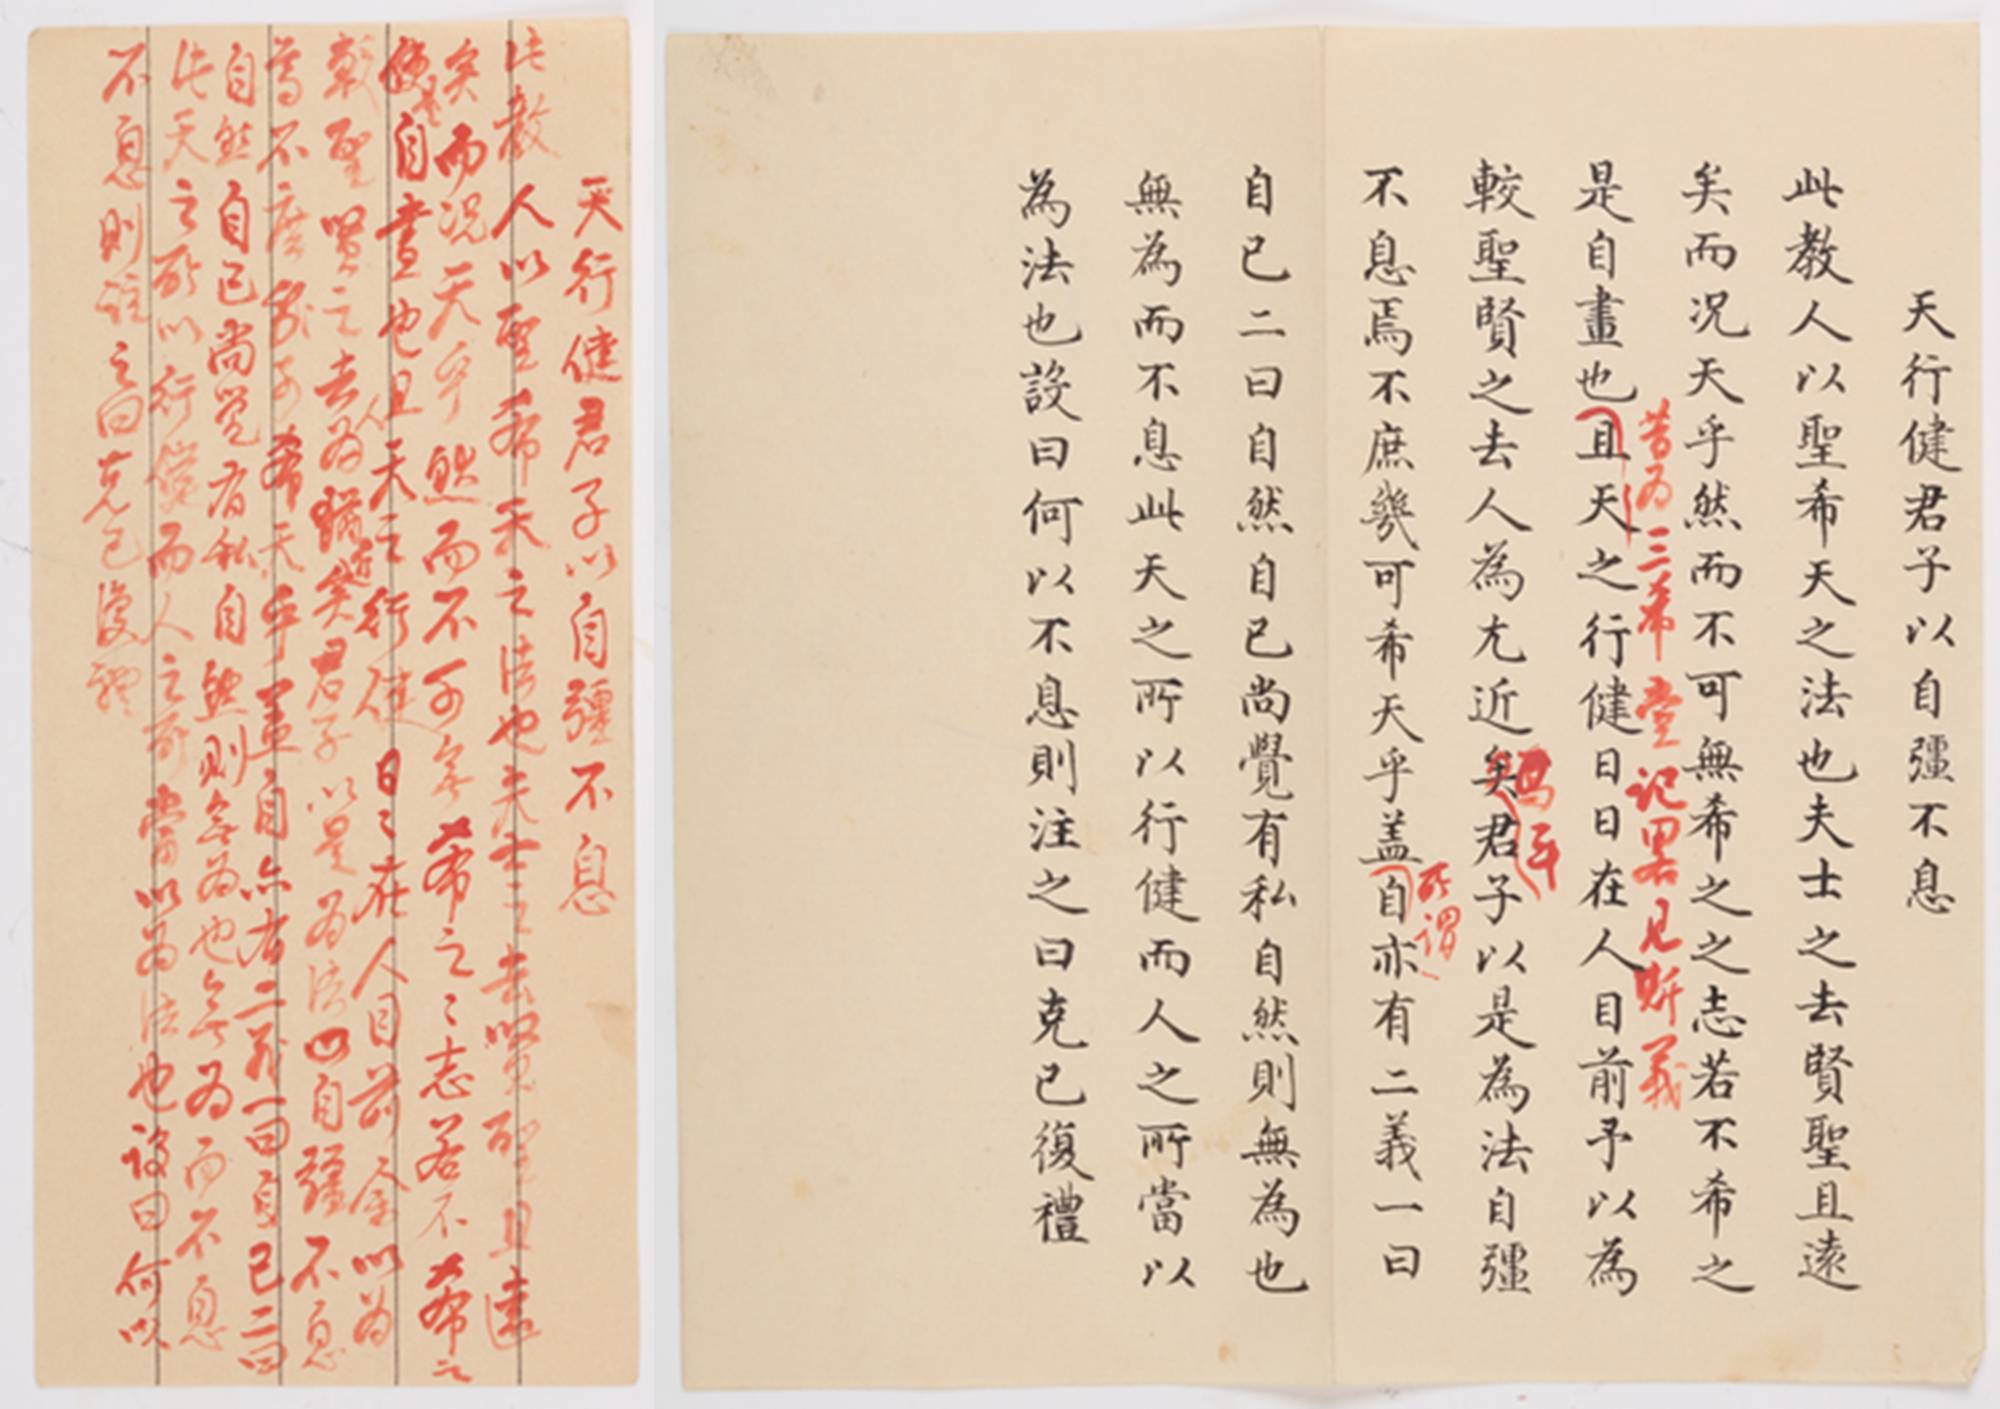 天行健君子以自彊不息
此教人以聖希天之法也夫士之去賢聖且遠
矣而況天乎然而不可無希之之志若不希之
昔為三希堂記畧見斯義
是自畫也且天之行健日日在人目前予以為
焉耳
較聖賢之去人為尤近矣君子以是為法自彊
所謂
不息焉不庶幾可希天乎盖自亦有二義一曰
自己二曰自然自己尚覺有私自然則無為也
無為而不息此天之所以行健而人之所當以
為法也設曰何以不息則注之曰克己復禮
天行健君子以自彊不息
此教人以聖希天之法也夫士之去賢聖且遠
矣而況天乎然而不可無希之〻志若不希之
便是自畫也且天之行健日〻在人目前余以為
較聖賢之去人為猶近矣君子以是為法以自彊不息
焉不庶幾可希天乎盖自亦有二義一曰自己二曰
自然自己尚覺有私自然則無為也無為而不息
此天之所以行健而人之所當以為法也設曰何以
不息則註之曰克己復禮